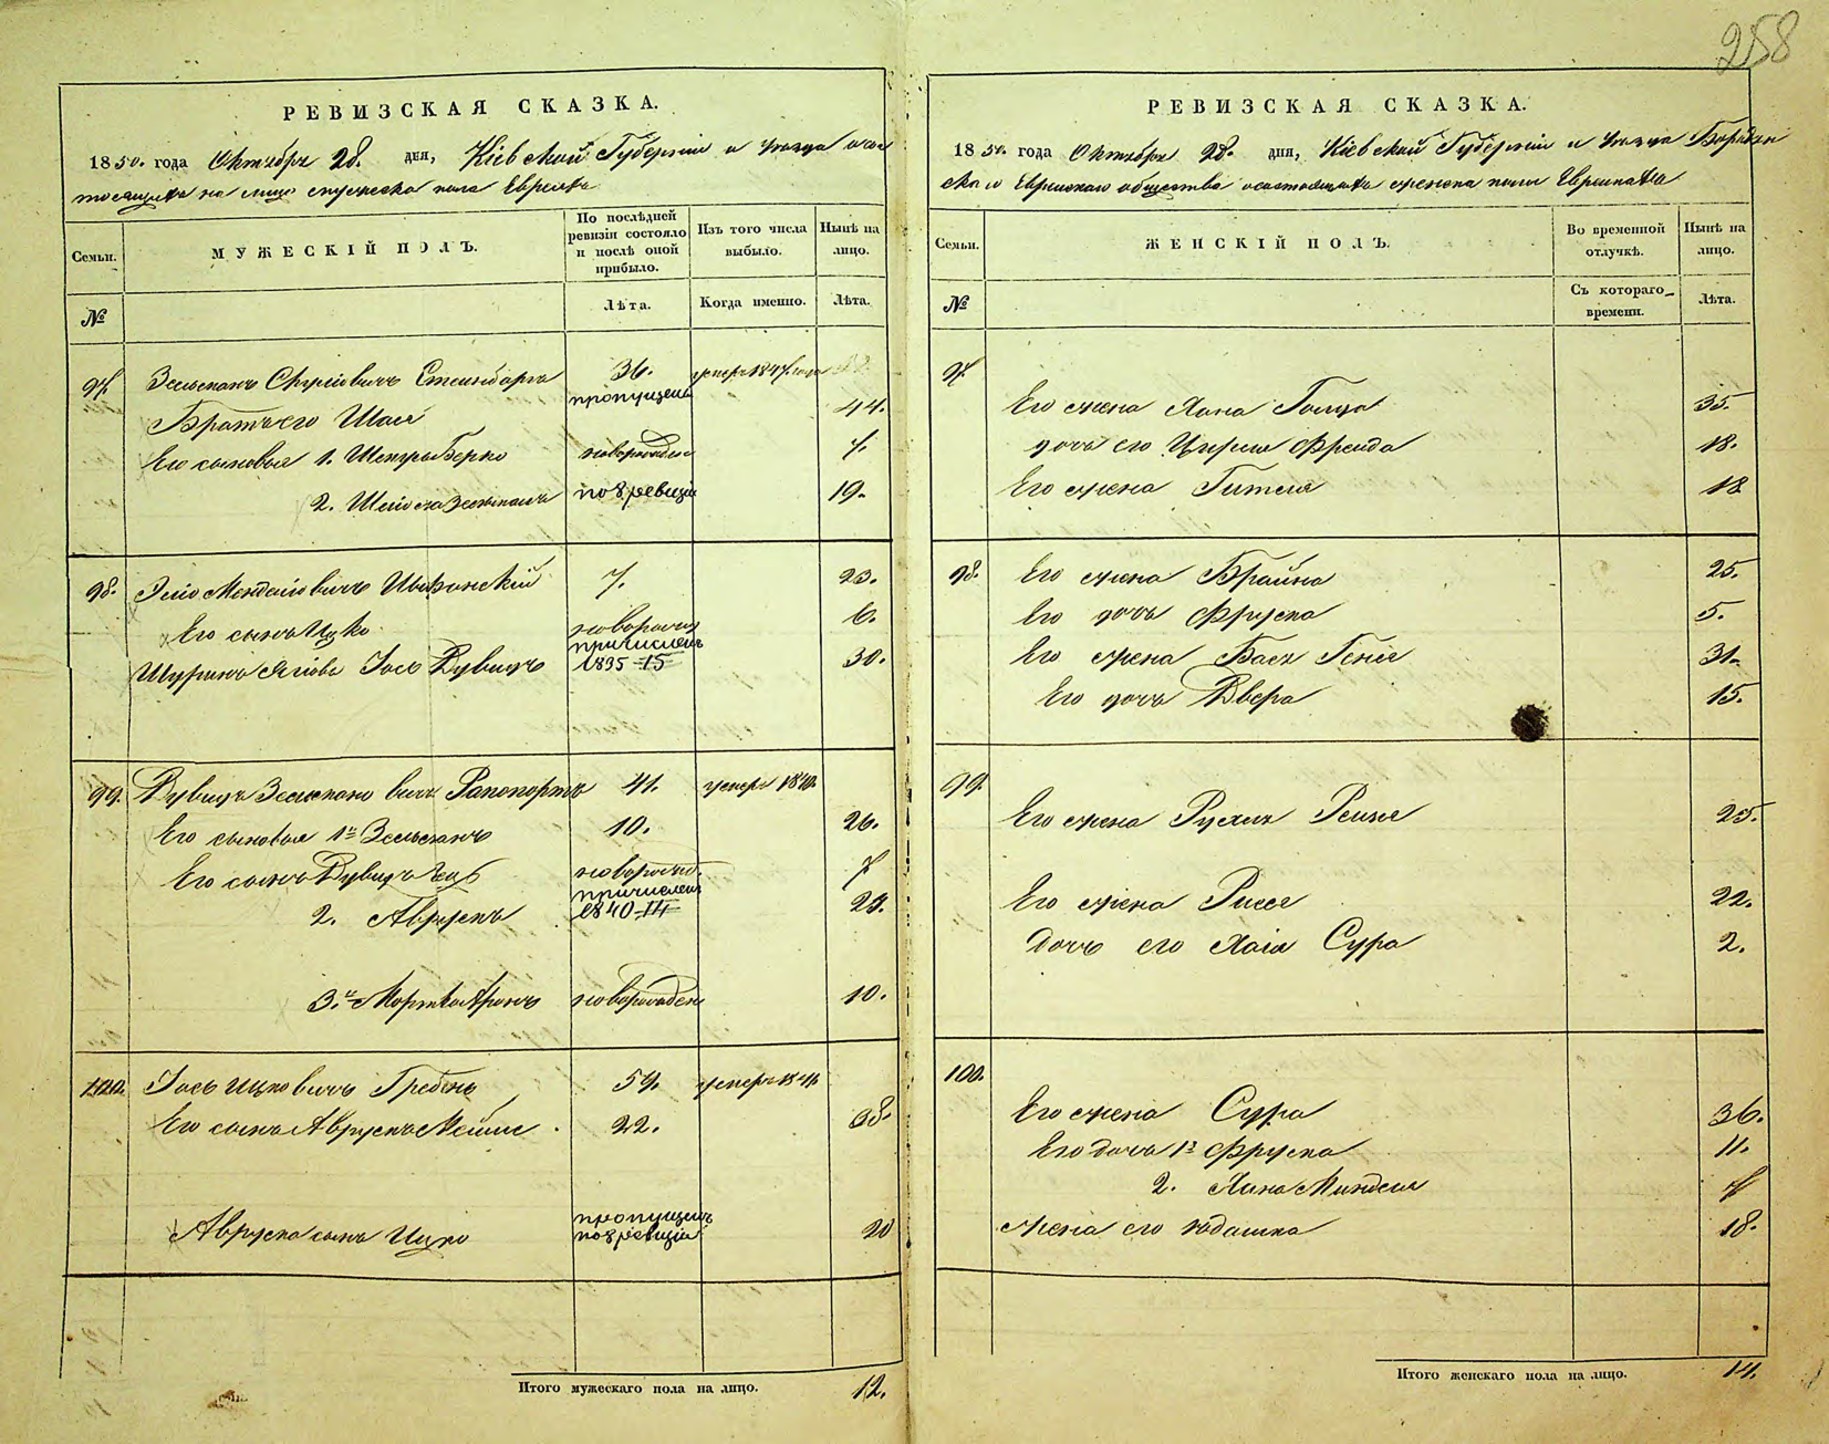 258
РЕВИЗСКАЯ СКАЗКА.
1850. года Октября 28. дня, Кіевской Губерніи и уезда о сос
тоящихъ на лицо мужеска пола Евреяхъ
Семьи.
МУЖЕСКІЙ ПОЛЪ.
По послѣдней ревизіи состояло и послѣ оной прибыло.
Изъ того числа выбыло.
Нынѣ на лицо.
№
Лѣта.
Когда именно.
Лѣта.
97. Зельманъ Стейнбаргъ 36. умеръ 1847. года
Братъ его Шая пропущенъ 44.
Его сыновья 1. Берко новорожден 7.
2. Зельманъ по 8 ревизіи 19.
98. Менделіовичъ 7. 23.
Его сынъ Ицко новорожд 6.
Шуринъ Іось Дувидъ причисленъ 1835 - 15 30.
99. Дувидъ Зельмановичъ Рапопортъ 41. умеръ 1840.
Его сыновья 1й Зельманъ 10. 26.
Его сынъ Дувидъ новорожд. 7
2. Аврумъ причисленъ 1840 - 14 23.
3.й Мортко Аронъ новорожден 10.
100. Іось Ицковичъ Гребень 59. умеръ
Его сынъ Аврумъ 22. 38.
Аврума сынъ Ицко пропущенъ по 8 ревизіи 20
Итого мужескаго пола на лицо. 12.
РЕВИЗСКАЯ СКАЗКА.
1850. года Октября 28. дня, Кіевской Губерніи и уезда
Еврейскаго общества о состоящихъ женска пола Еврейкахъ
Семьи.
ЖЕНСКІЙ ПОЛЪ.
Во временной отлучкѣ.
Нынѣ на лицо.
№
Съ котораго времени.
Лѣта.
97.
Его жена Хана 35.
дочь его Фрейда 18.
Его жена Гитля 18
98. Его жена Брайна 25.
Его дочь Фрума 5.
Его жена Бася Геня 31.
Его дочь Двера 15.
99.
Его жена Рухля Рейзя 25.
Его жена 22.
Дочь его Хаія Сура 2.
100.
Его жена Сура 36.
Его дочь 1я Фрума 11.
2. Хана Миндля 7
жена его 18.
Итого женскаго пола на лицо. 14.